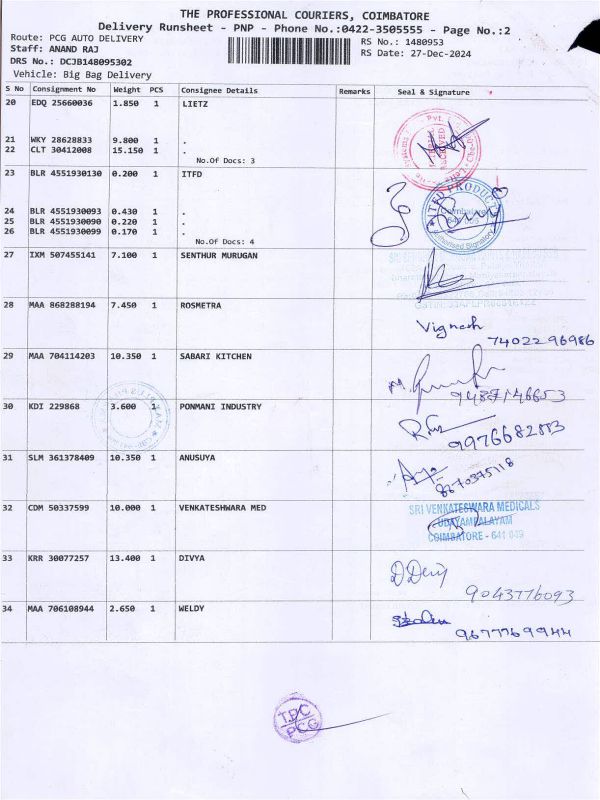 THE PROFESSIONAL COURIERS, COIMBATORE
Delivery Runsheet - PNP - Phone No.:0422-3505555 - Page No.:2
Route: PCG AUTO DELIVERY
RS No.: 1480953
Staff: ANAND RAJ
RS Date: 27-Dec-2024
DRS No.: DCJB148095302
Vehicle: Big Bag Delivery
S No Consignment No Weight PCS Consignee Details Remarks Seal & Signature
20 EDQ 25660036 1.850 1 LIETZ
21 WKY 28628833 9.800 1 .
22 CLT 30412008 15.150 1 .
No.Of Docs: 3
23 BLR 4551930130 0.200 1 ITFD
24 BLR 4551930093 0.430 1 .
25 BLR 4551930090 0.220 1 .
26 BLR 4551930099 0.170 1 .
No.Of Docs: 4
27 IXM 507455141 7.100 1 SENTHUR MURUGAN
28 MAA 868288194 7.450 1 ROSMETRA
Vignesh
7402296986
29 MAA 704114203 10.350 1 SABARI KITCHEN
9487146653
30 KDI 229868 3.600 1 PONMANI INDUSTRY
31 SLM 361378409 10.350 1 ANUSUYA
8870375118
32 CDM 50337599 10.000 1 VENKATESHWARA MED
SRI VENKATESWARA MEDICALS
UDAYAMPALAYAM
COIMBATORE - 641 049
33 KRR 30077257 13.400 1 DIVYA
9043776093
34 MAA 706108944 2.650 1 WELDY
9677769944
T.P.C
PCG